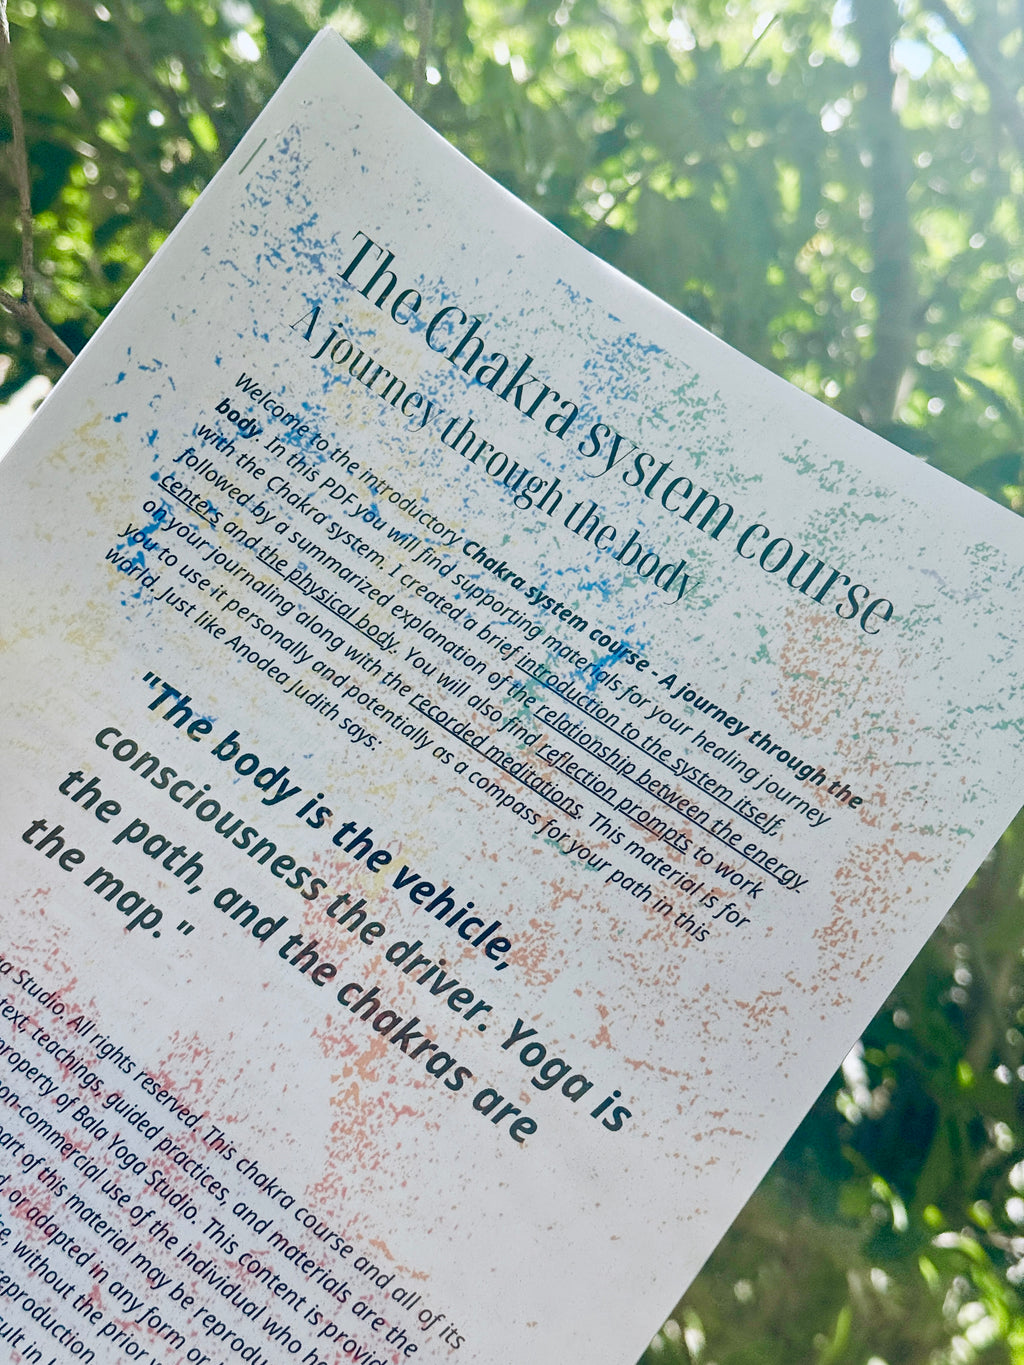 The Chakra system course
A journey through the body
Welcome to the introductory Chakra system course - A journey through the
body. In this PDF you will find supporting materials for your healing journey
with the Chakra system. I created a brief introduction to the system itself,
followed by a summarized explanation of the relationship between the energy
centers and the physical body. You will also find reflection prompts to work
on your journaling along with the recorded meditations. This material is for
you to use it personally and potentially as a compass for your path in this
world. Just like Anodea Judith says:
"The body is the vehicle,
consciousness the driver. Yoga is
the path, and the chakras are
the map."
Studio. All rights reserved. This chakra course and all of its
text, teachings, guided practices, and materials are the
property of Bala Yoga Studio. This content is
commercial use of the individual who
of this material may be
or adapted in any form or
without the prior